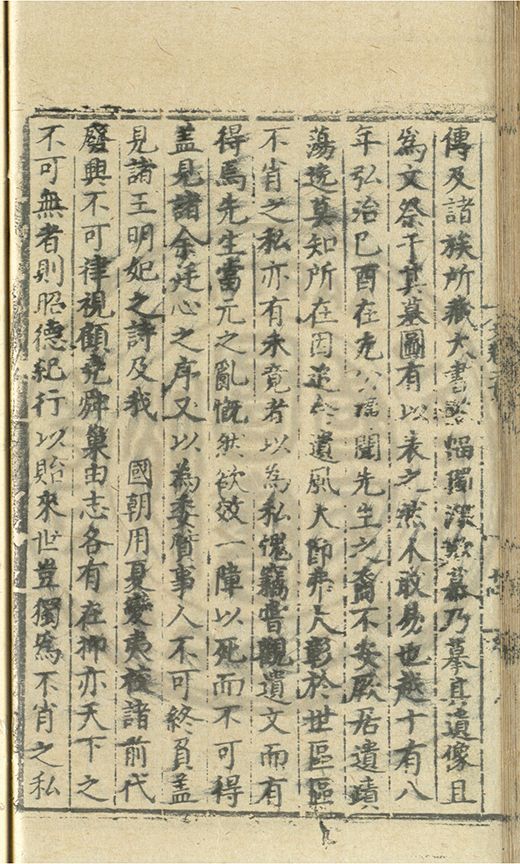 傳及諸族所藏大書數幅獨深欽慕乃摹其遺像且
為文祭于其墓圖有以表之然不敢易也越十有八
年弘治己酉在先公瑀聞先生之裔不安厥居遺蹟
蕩逸莫知所在因追念遺風大節弗大彰於世區區
不肖之私亦有未竟者以為私愧竊嘗觀遺文而有
得焉先生當元之亂慨然欲效一障以死而不可得
盖見諸余廷心之序又以為委質事人不可終負盖
見諸王明妃之詩及我　國朝用夏變夷極諸前代
廢興不可律視顧堯舜巢由志各有在抑亦天下之
不可無者則昭德紀行以貽來世豈獨為不肖之私